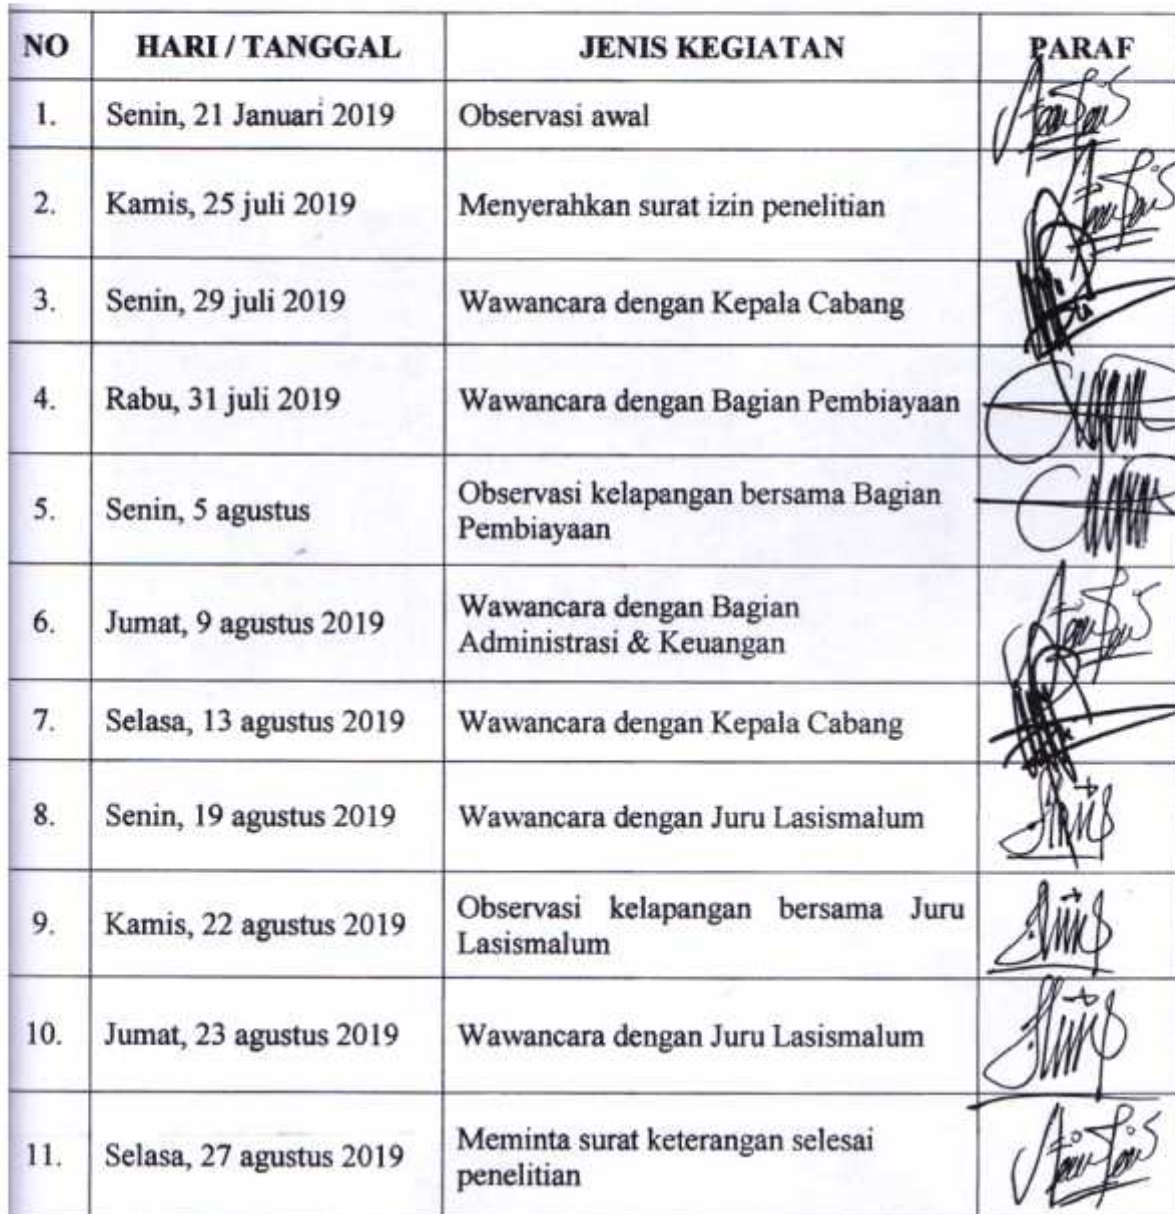 NO HARI / TANGGAL JENIS KEGIATAN PARAF
1. Senin, 21 Januari 2019 Observasi awal
2. Kamis, 25 juli 2019 Menyerahkan surat izin penelitian
3. Senin, 29 juli 2019 Wawancara dengan Kepala Cabang
4. Rabu, 31 juli 2019 Wawancara dengan Bagian Pembiayaan
5. Senin, 5 agustus Observasi kelapangan bersama Bagian
Pembiayaan
6. Jumat, 9 agustus 2019 Wawancara dengan Bagian
Administrasi & Keuangan
7. Selasa, 13 agustus 2019 Wawancara dengan Kepala Cabang
8. Senin, 19 agustus 2019 Wawancara dengan Juru Lasismalum
9. Kamis, 22 agustus 2019 Observasi kelapangan bersama Juru
Lasismalum
10. Jumat, 23 agustus 2019 Wawancara dengan Juru Lasismalum
11. Selasa, 27 agustus 2019 Meminta surat keterangan selesai
penelitian